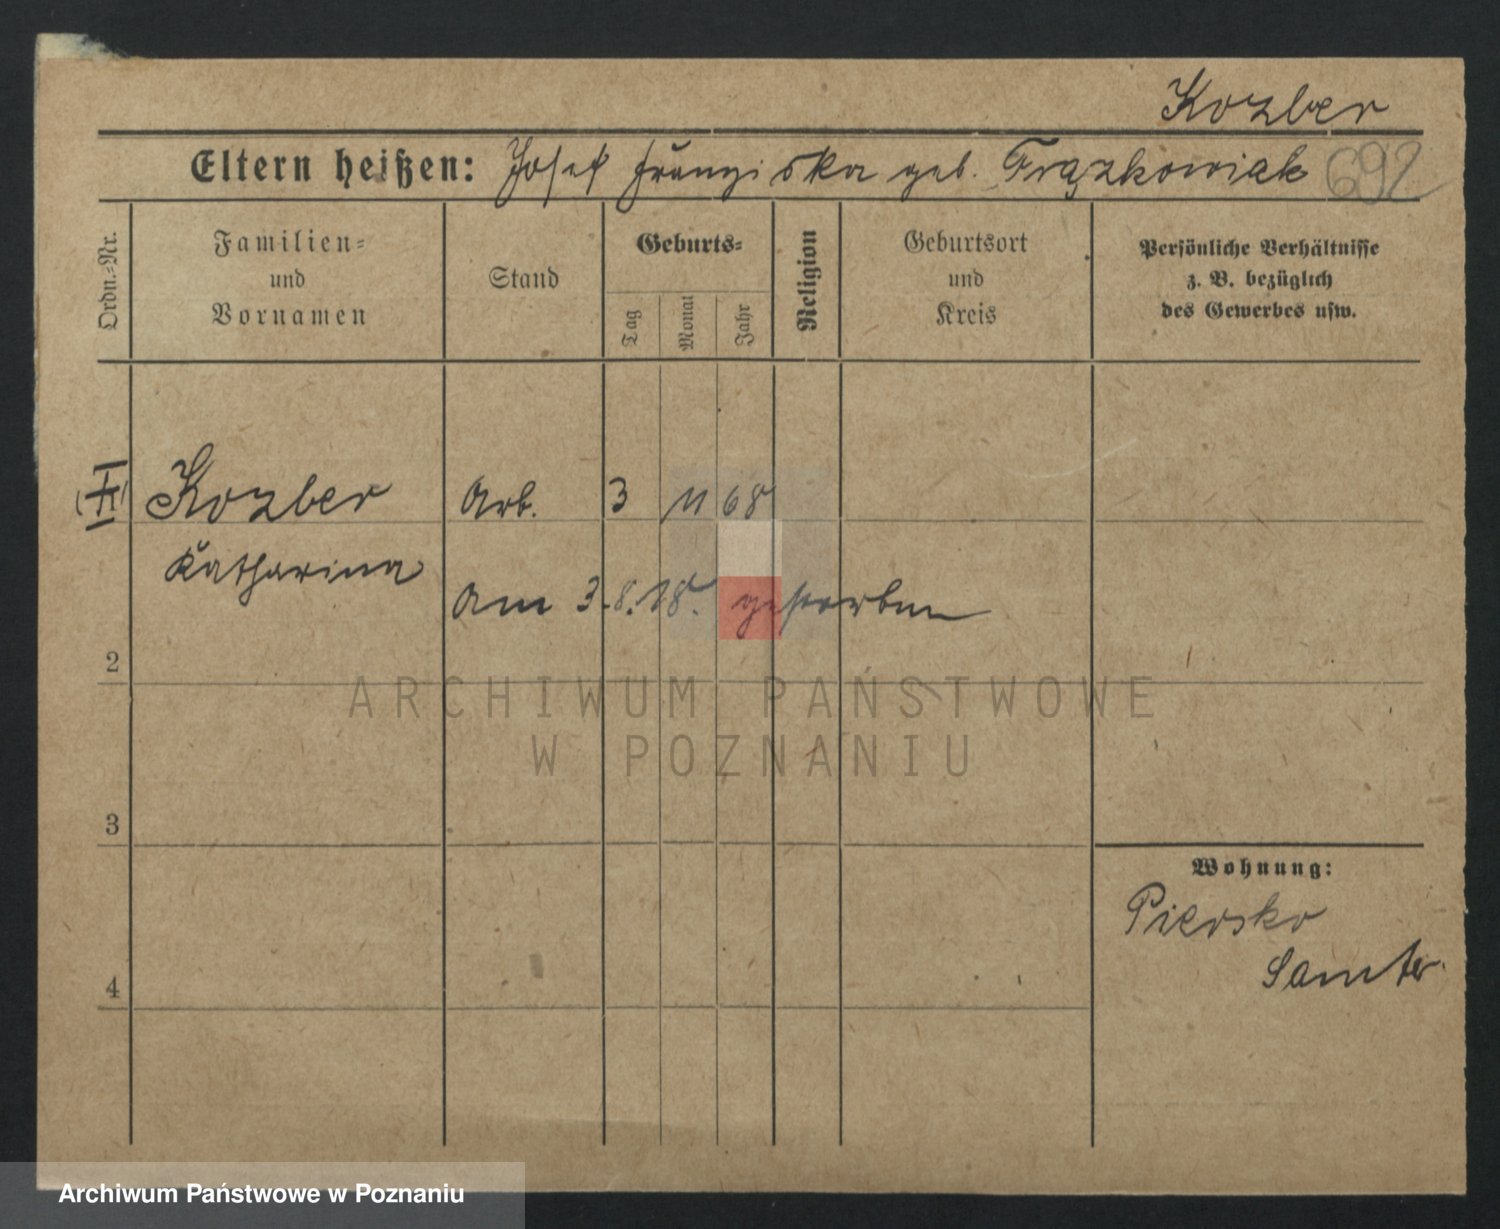 Kozber
Eltern heißen: Josef Franziska geb. Frązkowiak 692
Ordn.-Nr.
Familien- und Vornamen
Stand
Geburts-
Tag
Monat
Jahr
Religion
Geburtsort und Kreis
Persönliche Verhältnisse
z. B. bezüglich
des Gewerbes usw.
Kozber Arb. 3 11 68
Katharina
Am 3.8.18. gestorben
2
ARCHIWUM PAŃSTWOWE
W POZNANIU
3
Wohnung:
Piersko
Samter
4
Archiwum Państwowe w Poznaniu